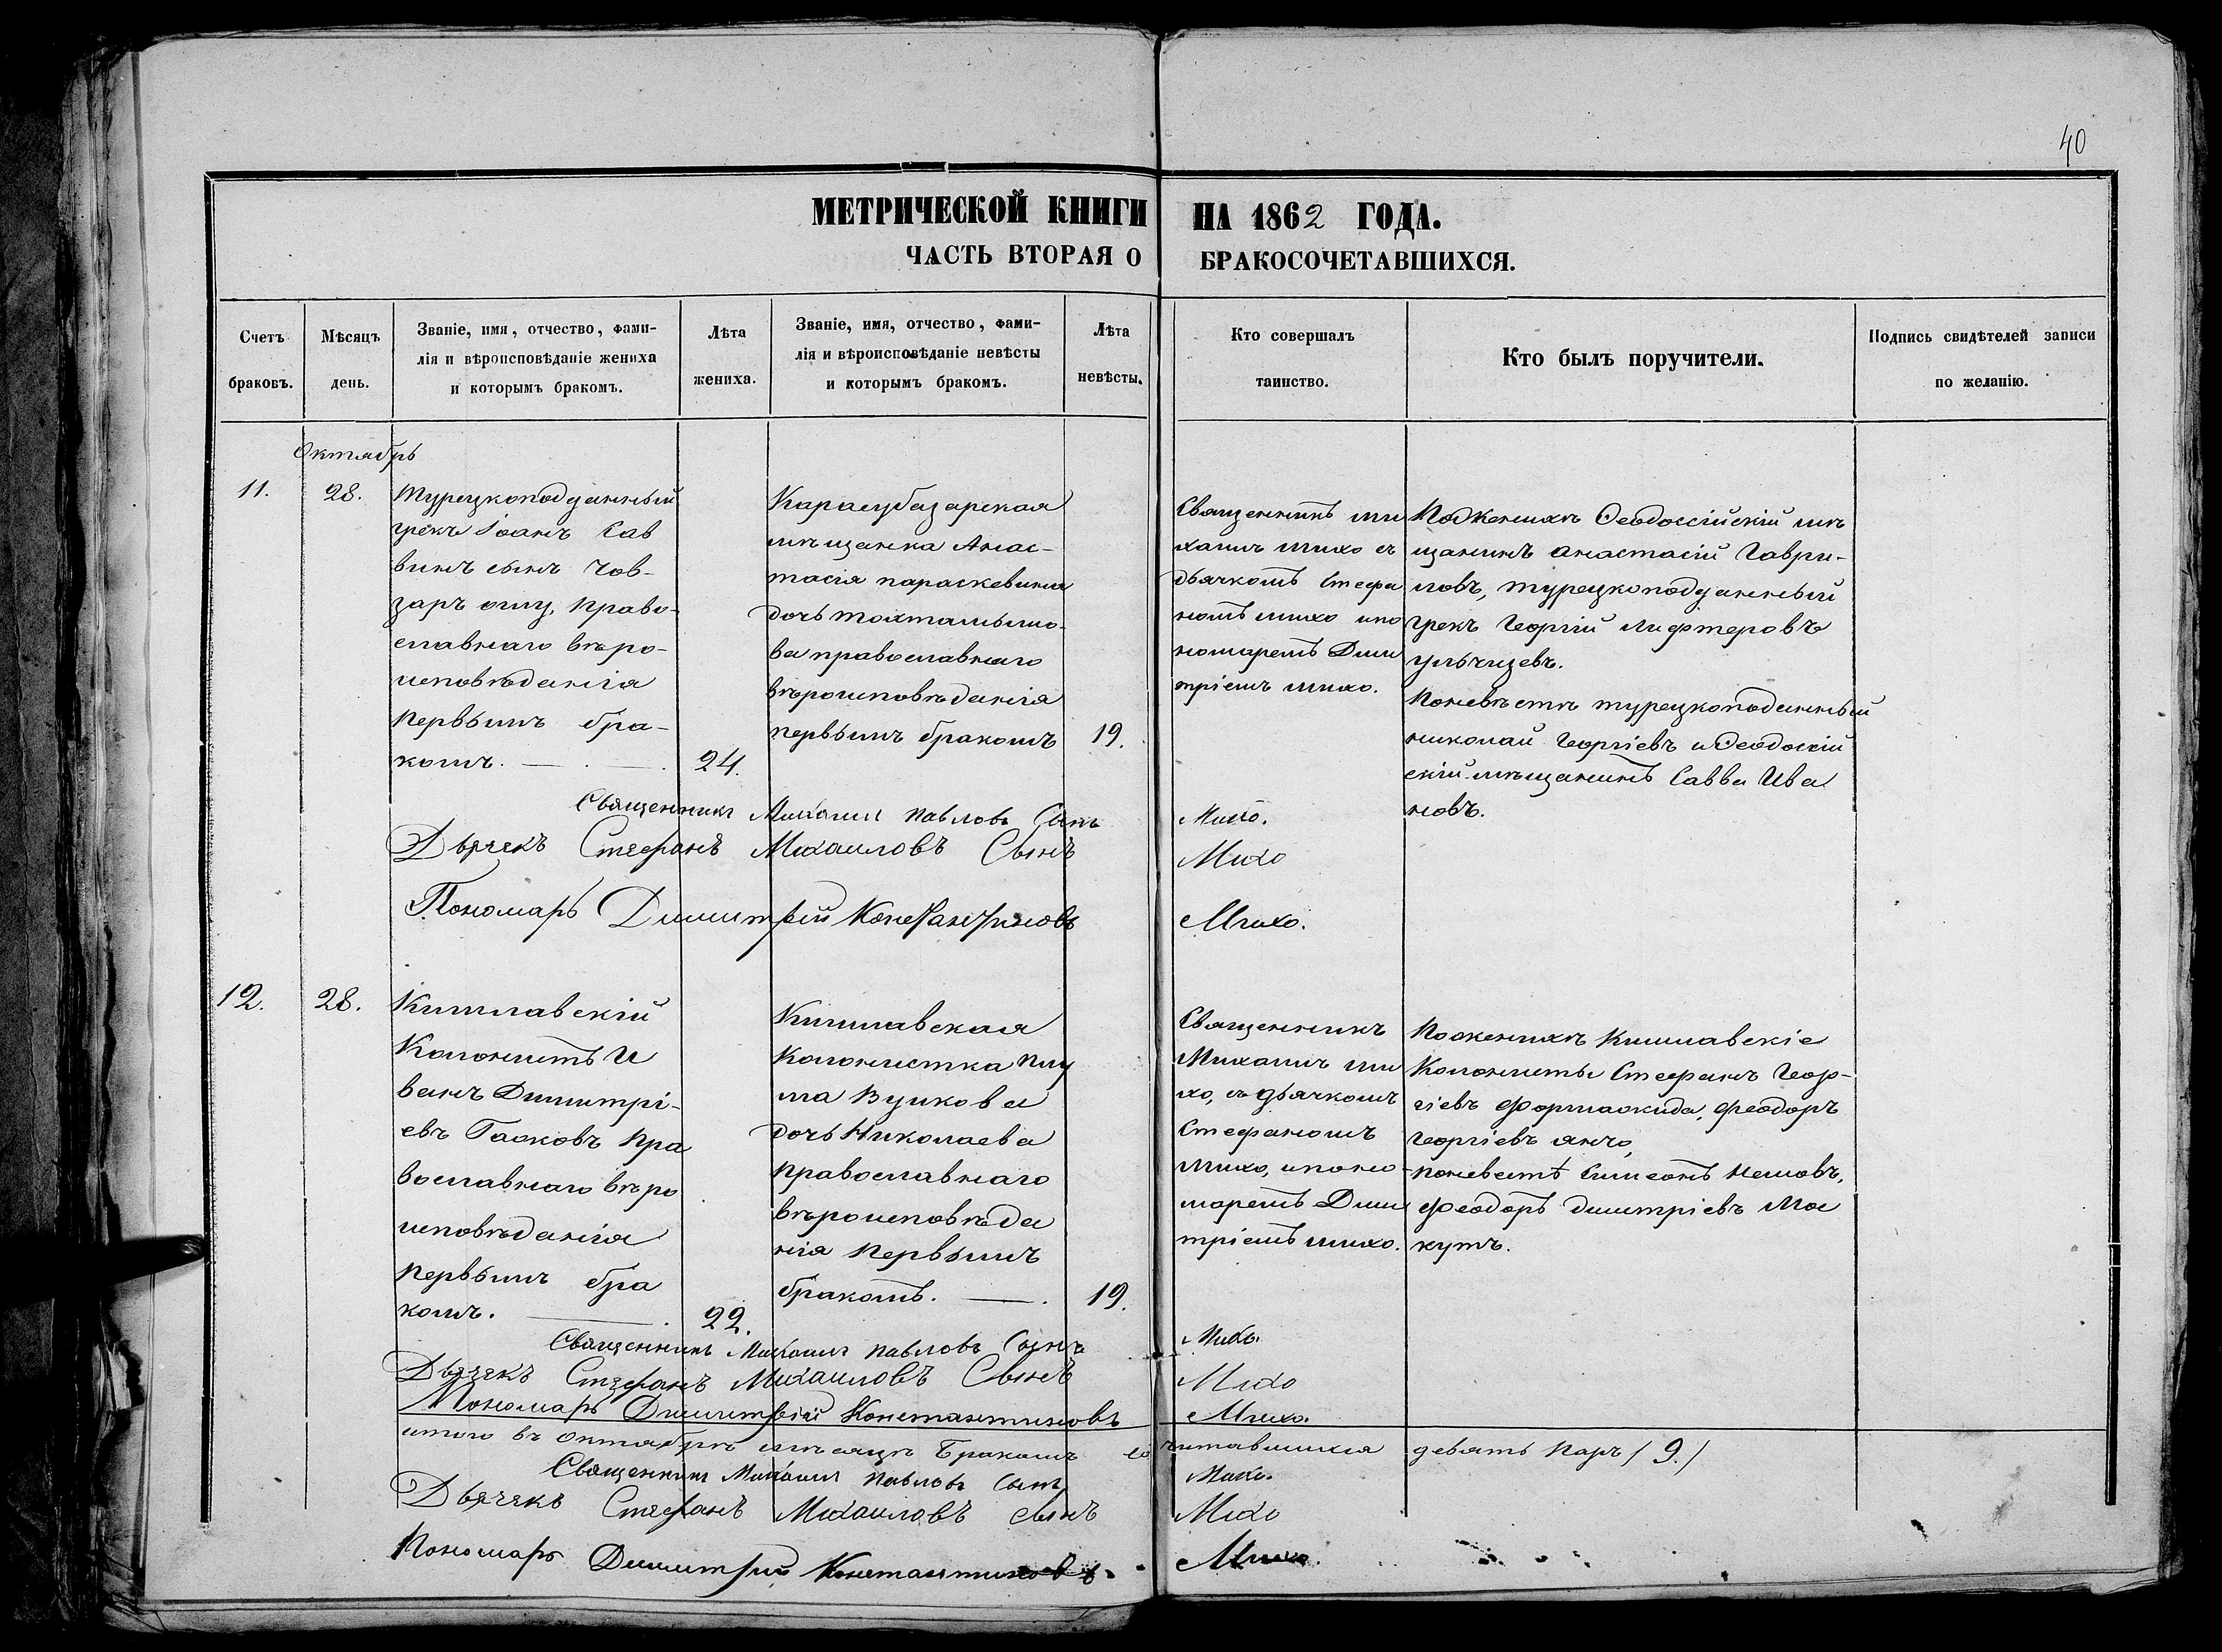 40
МЕТРИЧЕСКОЙ КНИГИ НА 1862 ГОДА.
ЧАСТЬ ВТОРАЯ О БРАКОСОЧЕТАВШИХСЯ.
Счетъ
браковъ.
Мѣсяцъ
день.
Званіе, имя, отчество, фами-
лія и вѣроисповѣданіе жениха
и которымъ бракомъ.
Лѣта
жениха.
Званіе, имя, отчество, фами-
лія и вѣроисповѣданіе невѣсты
и которымъ бракомъ.
Лѣта
невѣсты.
Кто совершалъ
таинство.
Кто былъ поручители.
Подпись свидѣтелей записи
по желанію.
Октябрь
11.
28.
Турецкоподданный
грекъ Іоанъ Сав
винъ сынъ Чов-
заръ оглу, право-
славнаго вѣро-
исповѣданія
первымъ бра-
комъ.
24.
Карасубазарская
мѣщанка Анас-
тасія параскевина
дочь тохтамышо-
ва православнаго
вѣроисповѣданія
первымъ бракомъ
19.
Священникъ ми
хаилъ михо съ
дьячкомъ Стефа
номъ михо ипо
номаремъ Дими
тріемъ михо.
Поженихѣ Ѳеодоссійскій мѣ
щанинъ анастасій Гаври-
ловъ, турецкоподданный
грекъ Георгій Лифтеровъ
Поневѣстѣ турецкоподанный
николай Георгіевъ и Ѳеодоссій
скій мѣщанинъ Савва Ива
новъ.
Священникъ Михаилъ Павловъ Сынъ Михо.
Дьячекъ Стефанъ Михаиловъ Сынъ Михо
Пономарь Димитрій Константиновъ Михо.
12.
28.
Кишлавскій
Колонистъ И
ванъ Димитрі-
евъ Гасковъ пра
вославнаго вѣро
исповѣданія
первымъ бра
комъ.
22.
Кишлавская
колонистка
Вулкова
дочь Николаева
православнаго
вѣроисповѣда
нія первымъ
бракомъ.
19.
Священникъ
Михаилъ ми
хо, съ дьячкомъ
Стефаномъ
Михо, ипоно-
маремъ Дими
тріемъ михо.
Поженихѣ Кишлавскіе
Колонисты Стефанъ Геор-
гіевъ Феодоръ
Георгіевъ янчо,
поневестѣ Симеонъ Нешовъ,
Феодоръ димитріевъ Мос
кутъ.
Священникъ Михаилъ Павловъ Сынъ Михо.
Дьячекъ Стефанъ Михаиловъ Сынъ Михо
Пономарь Димитрій Константиновъ Михо.
итого въ октябрѣ мѣсяцѣ Бракомъ сочитавшихся девять паръ / 9. /
Священникъ Михаилъ Павловъ Сынъ Михо.
Дьячекъ Стефанъ Михаиловъ сынъ Михо
Пономарь Димитрій Константиновъ Михо.